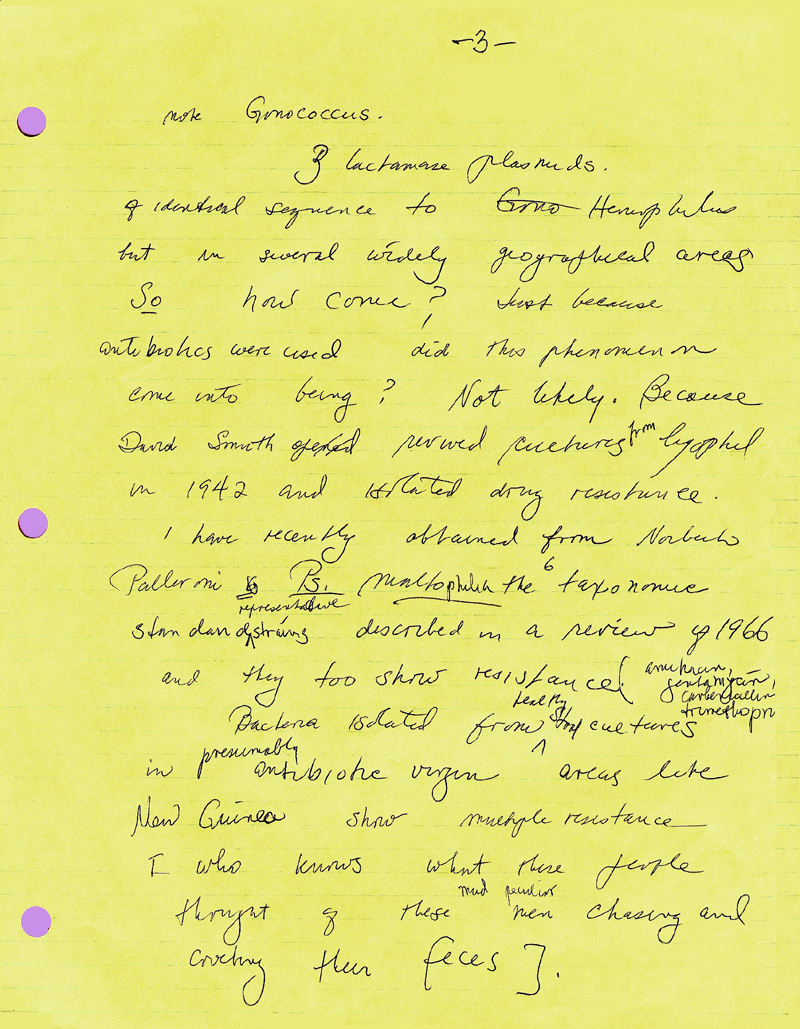 -3-
note Gonococcus.
β lactamase plasmids.
of identical sequence to Gono Hemophilus
but in several widely geographical areas
So how come? Just because
antibiotics were used did this phenomenon
come into being? Not likely. Because
David Smith opened revived cultures from lyophil
in 1942 and isolated drug resistance.
I have recently obtained from Norberto
Palleroni 6 Ps. maltophilia the 6 taxonomic
representative
standard strains described in a review of 1966
and they too show resistance (amikacin,
gentamycin,
carbenicillin
trimethoprim
Bacteria isolated from healthy stool cultures
in presumably antibiotic virgin areas like
New Guinea show multiple resistance
[ who knows what those people
thought of these mad peculiar men chasing and
coveting their feces ].